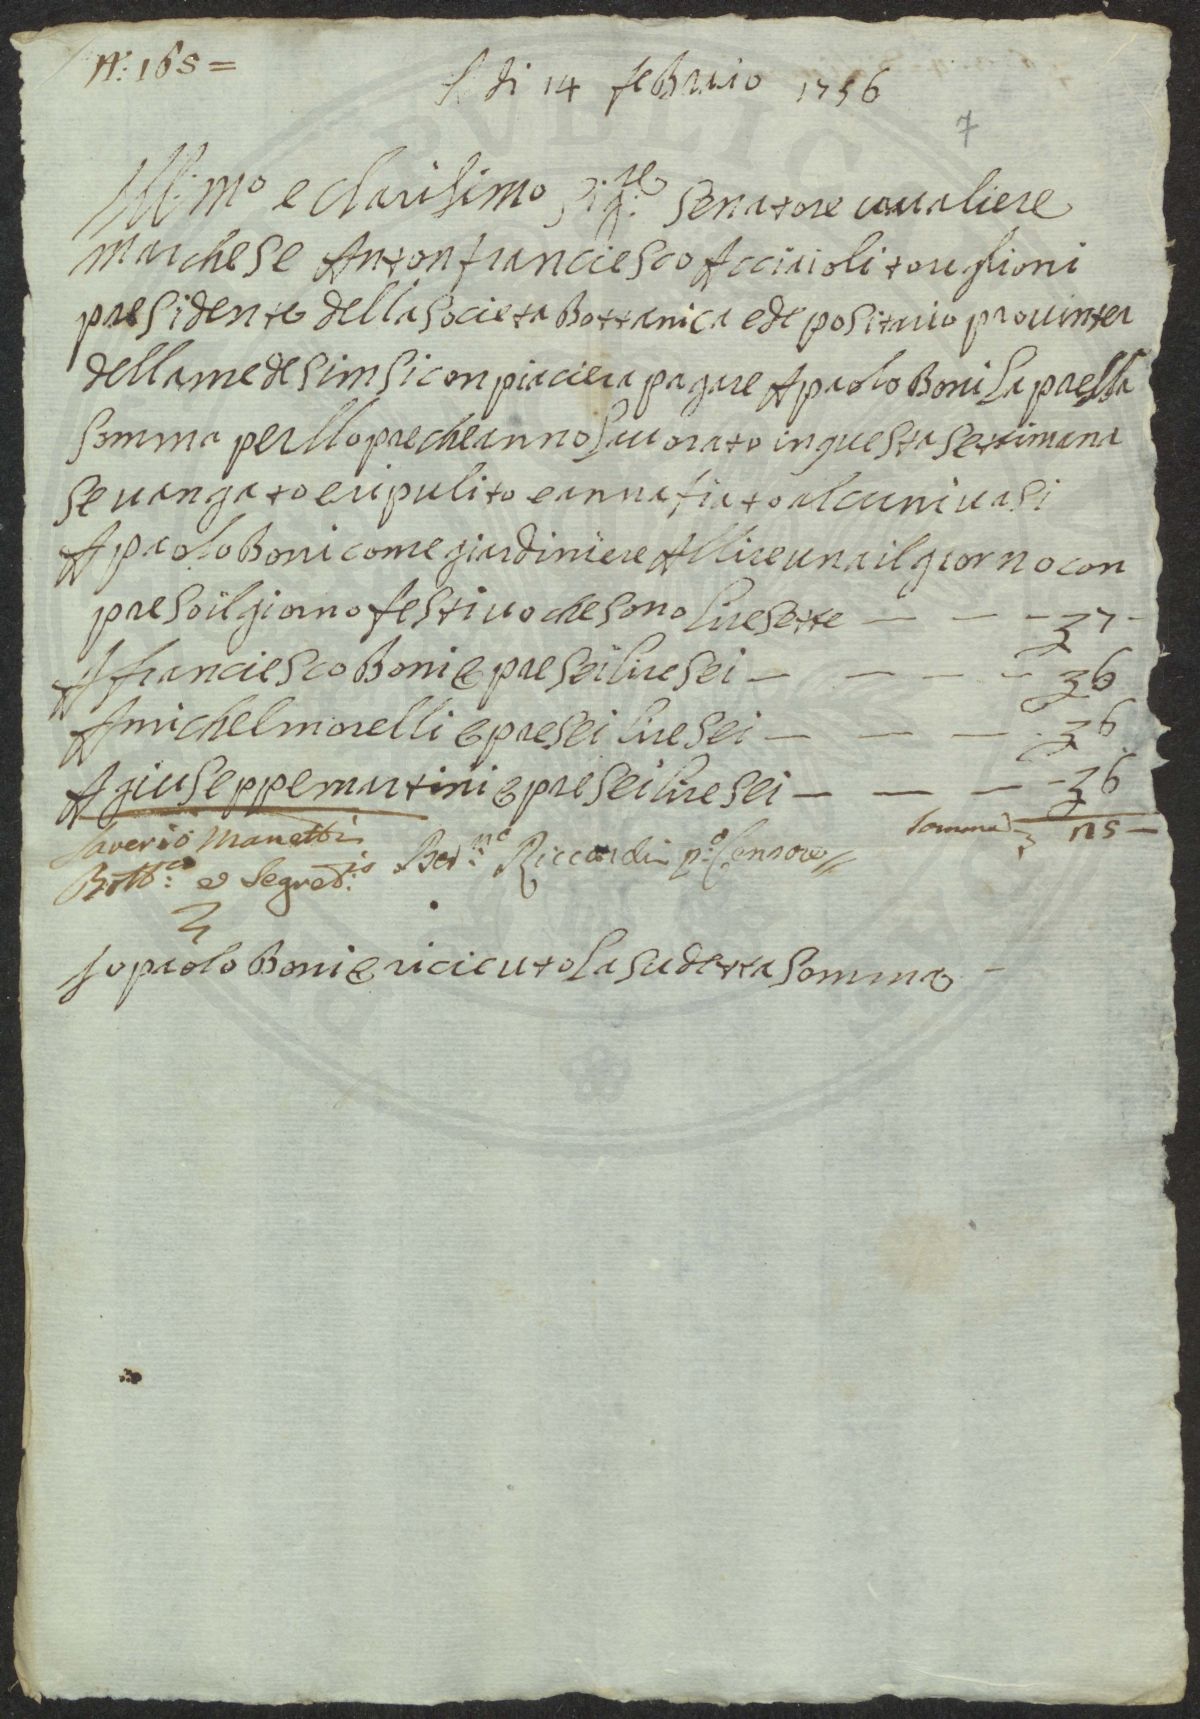 N: 165 =
A di 14 febraio 1756
7
Ill:mo e clarisimo Sig:re Senatore cavaliere
marchese Antonfranciesco Acciaioli toriglioni
presidente della Societa Bottanica e depositario provinter
della medesim si conpiaciera pagare A paolo Boni la prella
somma perllopre che anno lavorato in questa settimana
se vangato eripulito e annafiato alcuni vasi
A paolo Boni come giardiniere Allire una il giorno con
preso il giorno festivo che sono lire sette — — — 7 -
A franciesco Boni e pre sei lire sei — — — — 6
A michel morelli e pre sei lire sei — — — 6
A giuseppe martini e pre sei lire sei — — — 6
Somma — 25 —
Saverio Manetti
Bott:co e Segret:io
Ber:no Riccardi p:o Censore
Io paolo Boni e riceuto la sudetta somma -